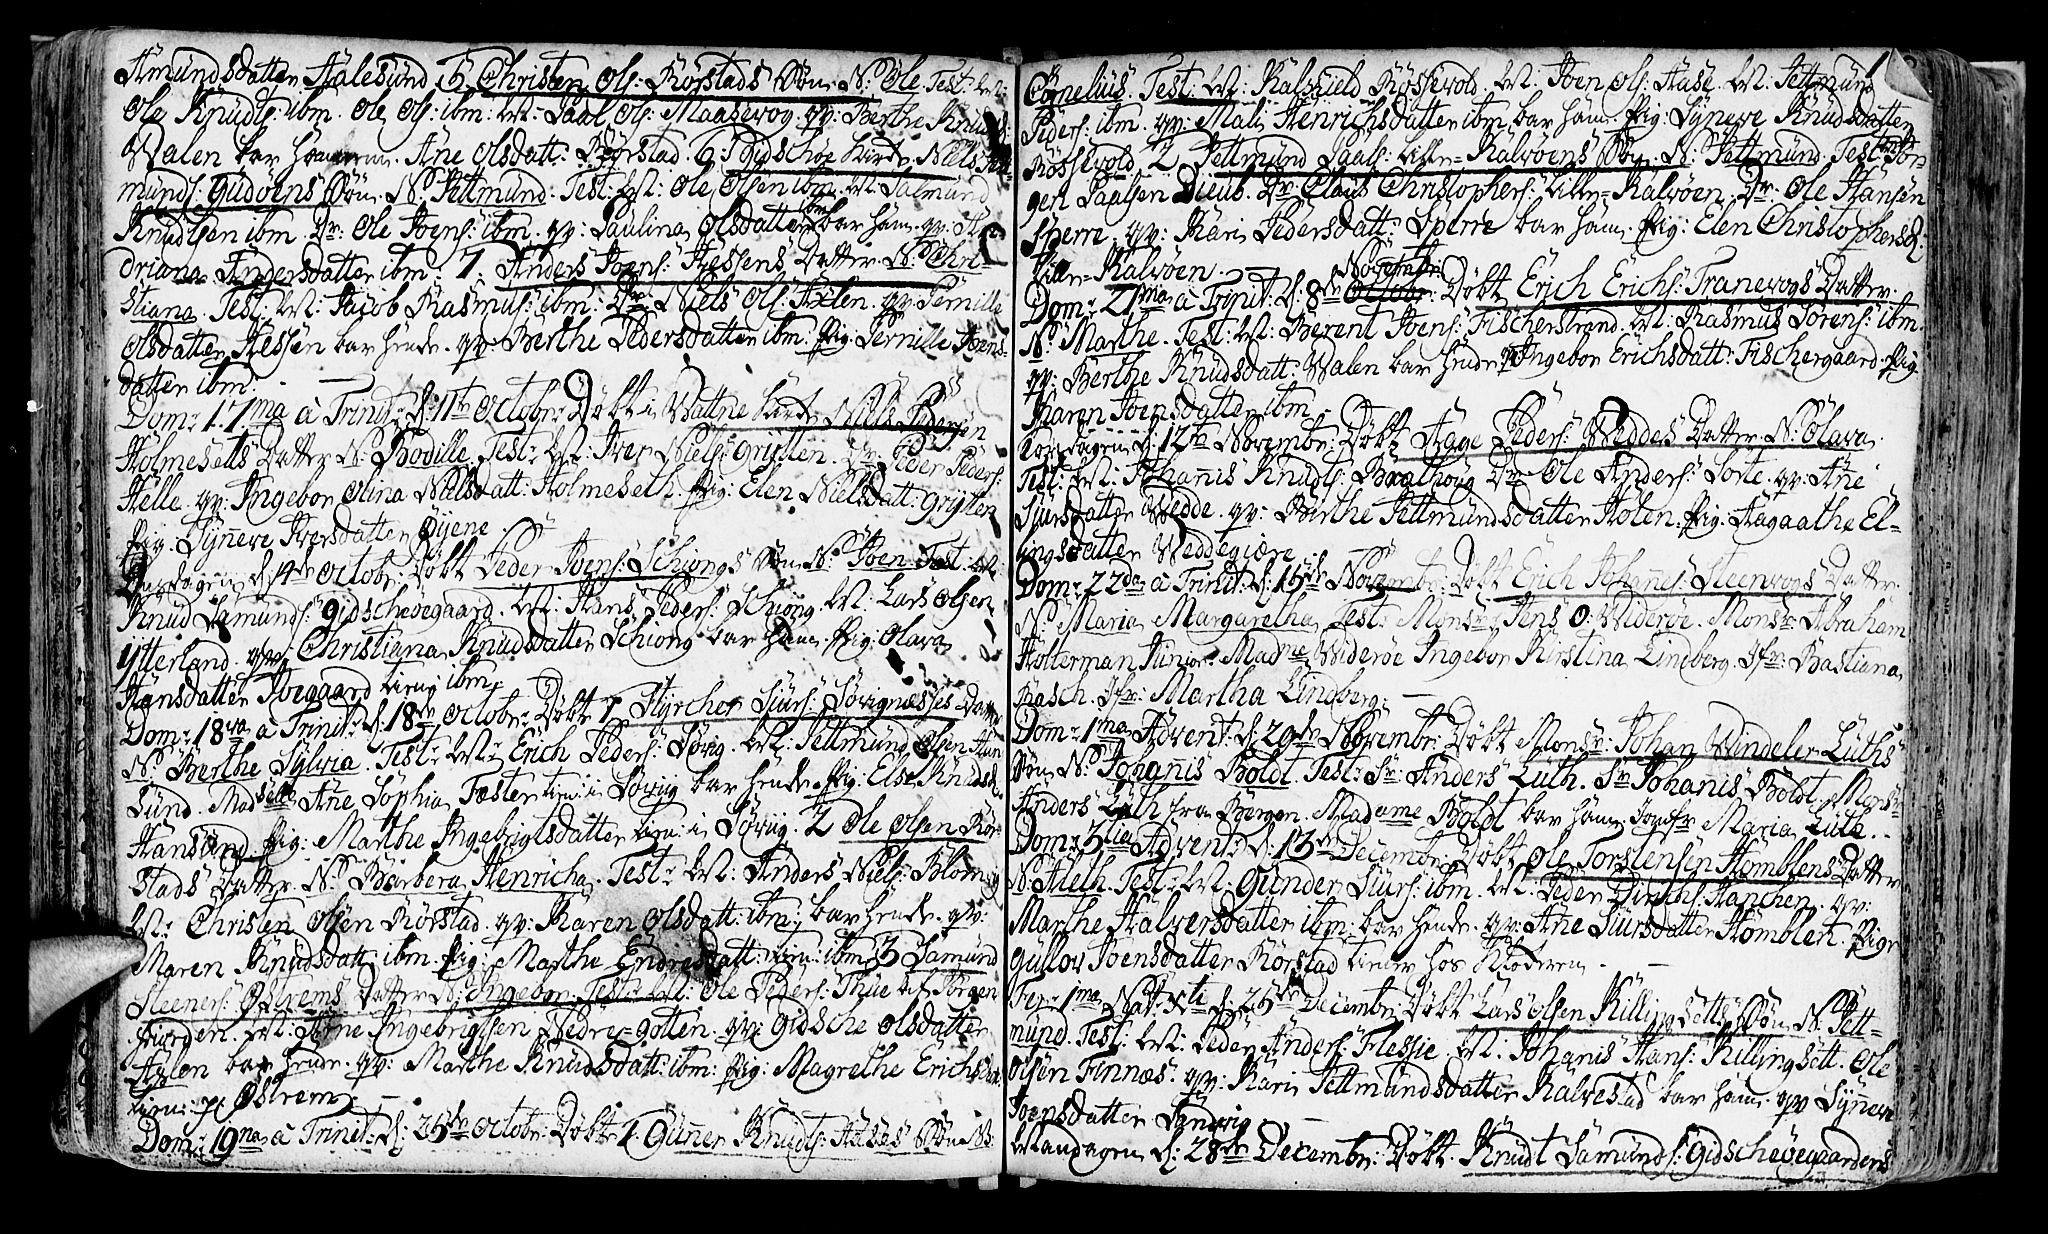 Amundsdatter Aalesund 5 Christen Ols: Rørstads Søn. N: Ole. Test:
Ole Knudts: ibm. Ole Ols: ibm: Paal Ols: Maasevog. qv: Berthe Knuds:
Walen bar ham. Ane Olsdatt: Rørstad. 6 I Gidschøe Kirke. Niels Tett-
munds: Gudøens Søn. N: Tettmund. Test: Ole Olsen ibm. Salmund
Knudtsen ibm. Dr: Ole Joens: ibm. qv: Paulina Olsdatter ibm bar ham. qv: A-
driana Andersdatter ibm: 7. Anders Joens: Hessens Datter. N: Chri-
stiana. Test: Jacob Rasmus: ibm: Dr: Niels Ols: Axlen. qv: Pernille
Olsdatter Hessen bar hende. qv: Berthe Pedersdatter ibm. Pig: Pernille Joens-
datter ibm.
Dom: 17ma à Trinit: d: 11te Octobr: Døbt i Wattne Kirke Niels Pedersen
Holmesetts Datter N: Bodille. Test: Iver Niels: Grytten. Peder Peders:
Helle. qv: Ingebor Olina Nielsdatt: Holmeseth. Pig: Elen Nielsdatt: Grytten
Pig: Synneve Iversdatter Øyene.
Onsdagen d: 14de Octobr: Døbt Peder Joens: Schiongs Søn N: Joen. Test:
Knud Samunds: Gidschøegaard. Hans Peders: Schiong. Lars Olsen
Ytterland. qv: Christiana Knudsdatter Schiong bar ham. Pig: Olava
Hansdatter Hoegaard tien: ibm.
Dom: 18va à Trinit: d: 18de Octobr: Døbt 1 Styrcher Siurs: Sørignæsses Datter
N: Berthe Sylvia. Test: Erich Peders: Sørig. Tettmund Olsen Han-
sund. Madselle Ane Sophia Foester tien: i Sørug bar hende. Pig: Else Knudsd:
Hansund. Pig: Marthe Ingebrigtsdatter tien: i Sørug. 2 Ole Olsen Rør-
stads Datter. N: Barbera Henricha. Test: Anders Niels: Blom.
Christen Olsen Rørstad. qv: Karen Olsdatt: ibm: bar hende. qv:
Maren Knudsdatt: ibm. Pig: Marthe Endresdatt: tien: ibm 3 Samund
Steeners: Østrems Datter N: Ingebor. Test: Ole Peders: Thue af Jørgen
fiorden. Arne Ingebrigtsen Nedre-Gotten. qv: Gidsche Olsdatter
Axlen bar hende. qv: Marthe Knudsdatt: ibm: Pig: Magrethe Erichsdatt:
tien: p: Østrem.
Dom: 19na à Trinit: d: 25de Octobr: Døbt 1. Gunner Knudts: Aases Søn N:
Cornelius. Test: Kalskield Røssevold. Joen Ols: Aase. Tettmund
Peders: ibm. qv: Mali Henrichsdatter ibm bar ham. Pig: Syneve Knudsdatter
Røssevold. 2 Tettmund Paals: Lille-Kalvøens Søn. N: Tettmund. Test: Jør-
gen Paalsen Dieub. Dr: Claus Christophers: Lille-Kalvøen. Dr: Ole Hansen
Sperre. qv: Kari Pedersdatt: Sperre bar ham. Pig: Elen Christophersd:
Lille-Kalvøen.
Dom: 21ma à Trinit: d: 8de Novembr: Døbt Erich Erichs: Tranevogs Datter.
N: Marthe. Test: Berent Joens: Fischerstrand. Rasmus Sørens: ibm.
qv: Berthe Knudsdatt: Walen bar hende. Ingebor Erichsdatt: Fischergaard. Pig:
Karen Joensdatter ibm.
Torsdagen d: 12te Novembr: Døbt Aage Peders: Weddes Datter N: Olava.
Test: Johannis Knudts: Bratthoug Dr: Ole Anders: Sorte. qv: Ane
Siursdatter Wedde. qv: Birthe Tettmundsdatter Holen. Pig: Aagaathe El-
lingsdatter Weddegiære.
Dom: 22da à Trinit: d: 15de Novembr: Døbt Erich Johanes: Steenvogs Datter.
N: Maria Margaretha Test: Monsr: Jens O. Widerøe. Monsr: Abraham
Holterman Junior. Madme Widerøe Ingebor Kirstina Lindberg. Jfr: Bastiana
Rasch. Jfr: Martha Lindberg.
Dom: 1ma Advent: d: 29de Novembr: Døbt Monsr: Johan Windeler Lüths
Søn N: Johanis Boldt. Test: Sr: Anders Lüth. Sr: Johanis Boldt. Monsr:
Anders Lüth fra Bergen. Madame Boldt bar ham Jomfr Maria Lüth.
Dom: 3tia Advent: d: 13de Decembr: Døbt Ole Torstensen Homblens Datter
N: Aleth. Test: Gunder Siurs: ibm. Peder Dirchs: Hanchen. qv:
Marthe Halversdatter ibm: bar hende. qv: Ane Siursdatter Homblen. Pige
Gullov Joensdatter Rørstad tiener hos Moderen.
Fer: 1ma Nat: Xti d: 25de Decembr: Døbt Lars Olsen Killingsetts Søn N: Tett-
mund. Test: Peder Anders: Flessie Johanis Hans: Killingsett. Ole
Olsen Finnæs. qv: Kari Tettmundsdatter Kalvestad bar ham. qv: Synneve
Joensdatter Sandvig
Mandagen d: 28de Decembr: Døbt Knudt Samunds: Gidschøegaardens